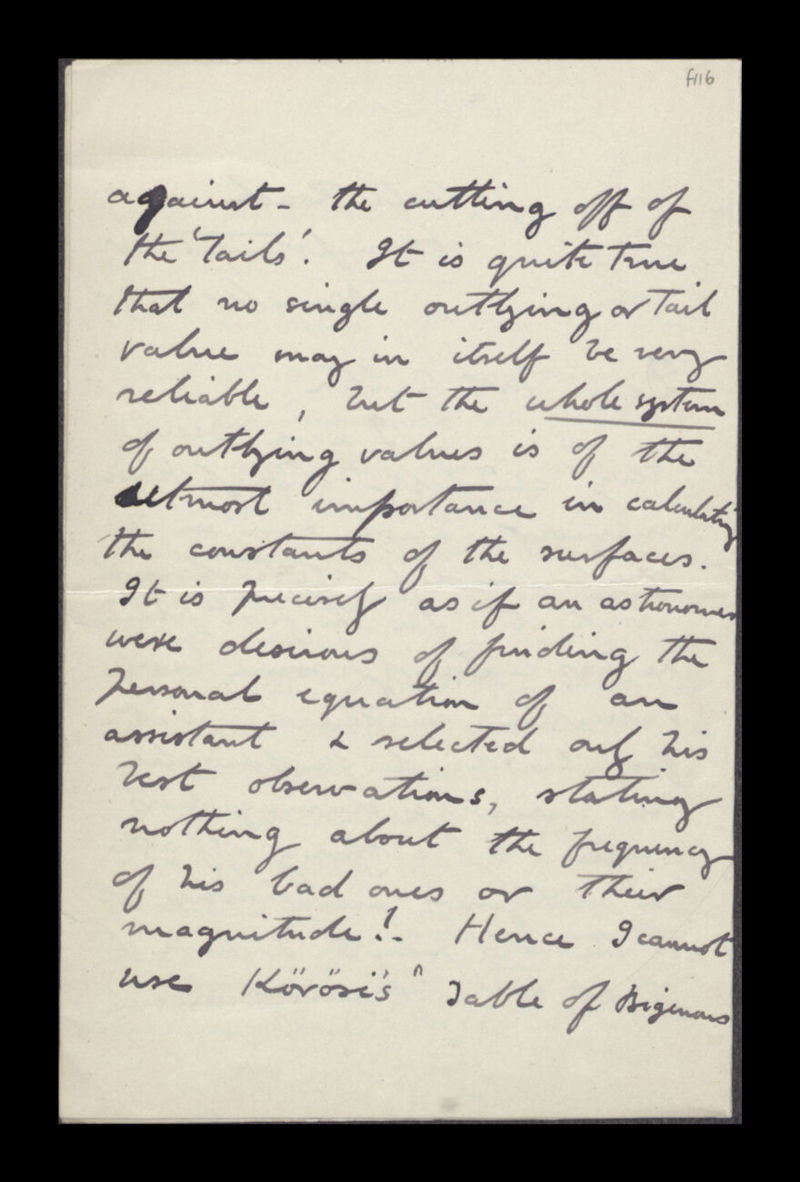 f116
against - the cutting off of
the 'tails'. It is quite true
that no single outlying or tail
value may in itself be very
reliable, but the whole system
of outlying values is of the
utmost importance in calculating
the constants of the surfaces.
It is precisely as if an astronomer
were desirous of finding the
personal equation of an
assistant & selected only his
best observations, stating
nothing about the frequency
of his bad ones or their
magnitude!. Hence I cannot
use Körösi's "Table of Bigenous